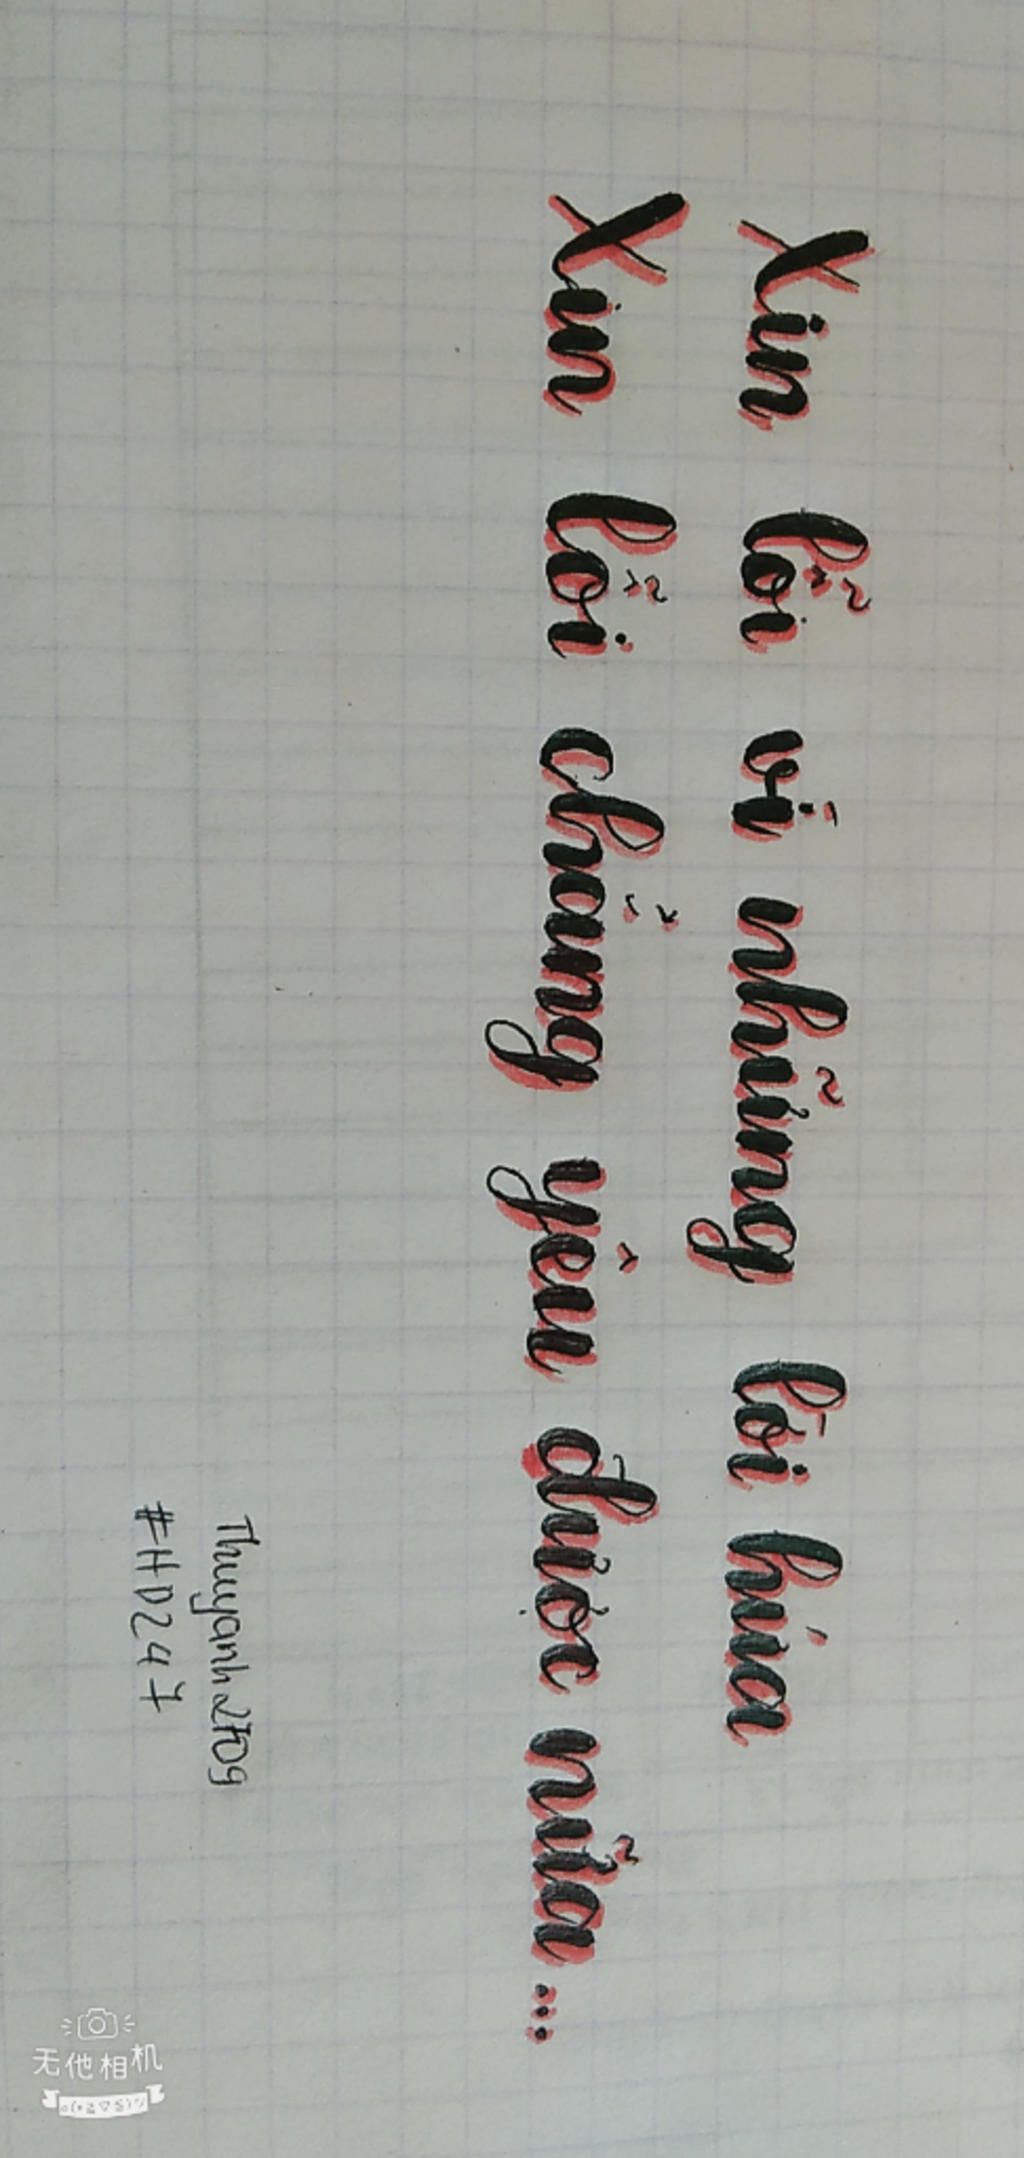 Xin lỗi vì những lời hứa
Xin lỗi chẳng yên được nữa...
Thuyanh2709
#HD247
无他相机